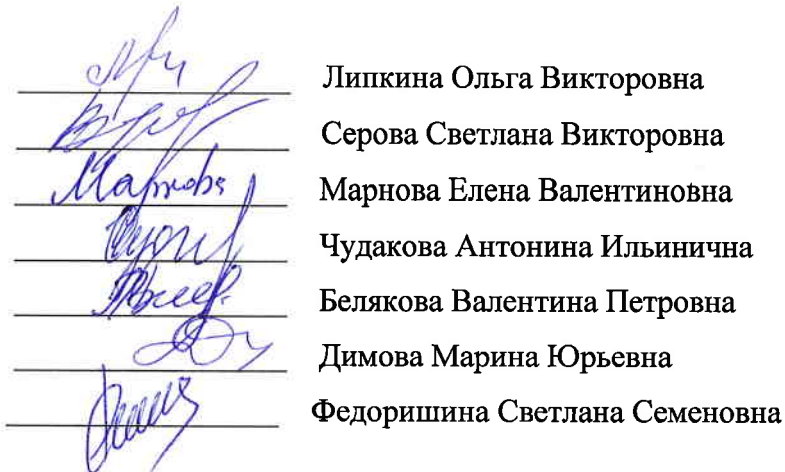 Липкина Ольга Викторовна
Серова Светлана Викторовна
Марнова Марнова Елена Валентиновна
Чудакова Антонина Ильинична
Белякова Валентина Петровна
Димова Марина Юрьевна
Федоришина Светлана Семеновна